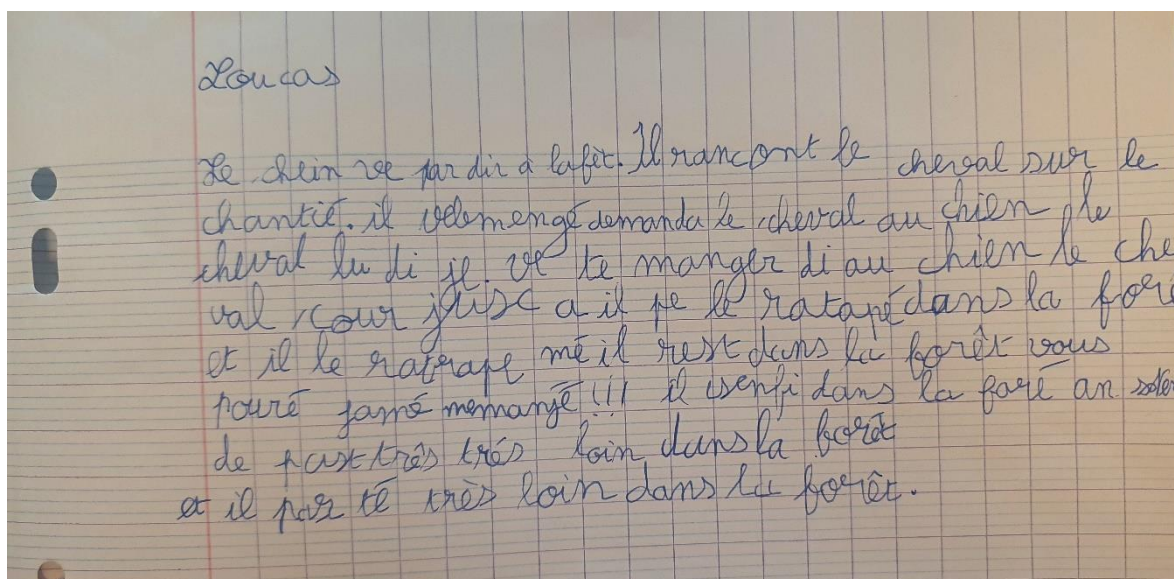 Loucas
Le chein ve par dir à lafèt. Il rancont le cheval sur le
chantié. il velemengé demanda le cheval au chien le
cheval lu di je ve te manger di au chien le che
val cour jusc a il pe le ratapé dans la forê
et il le ratrape mé il rest dans la forêt vous
pouré jamé memangé!!! il senfi dans la foré an
de part très trés loin dans la forêt
et il par té très loin dans la forêt.